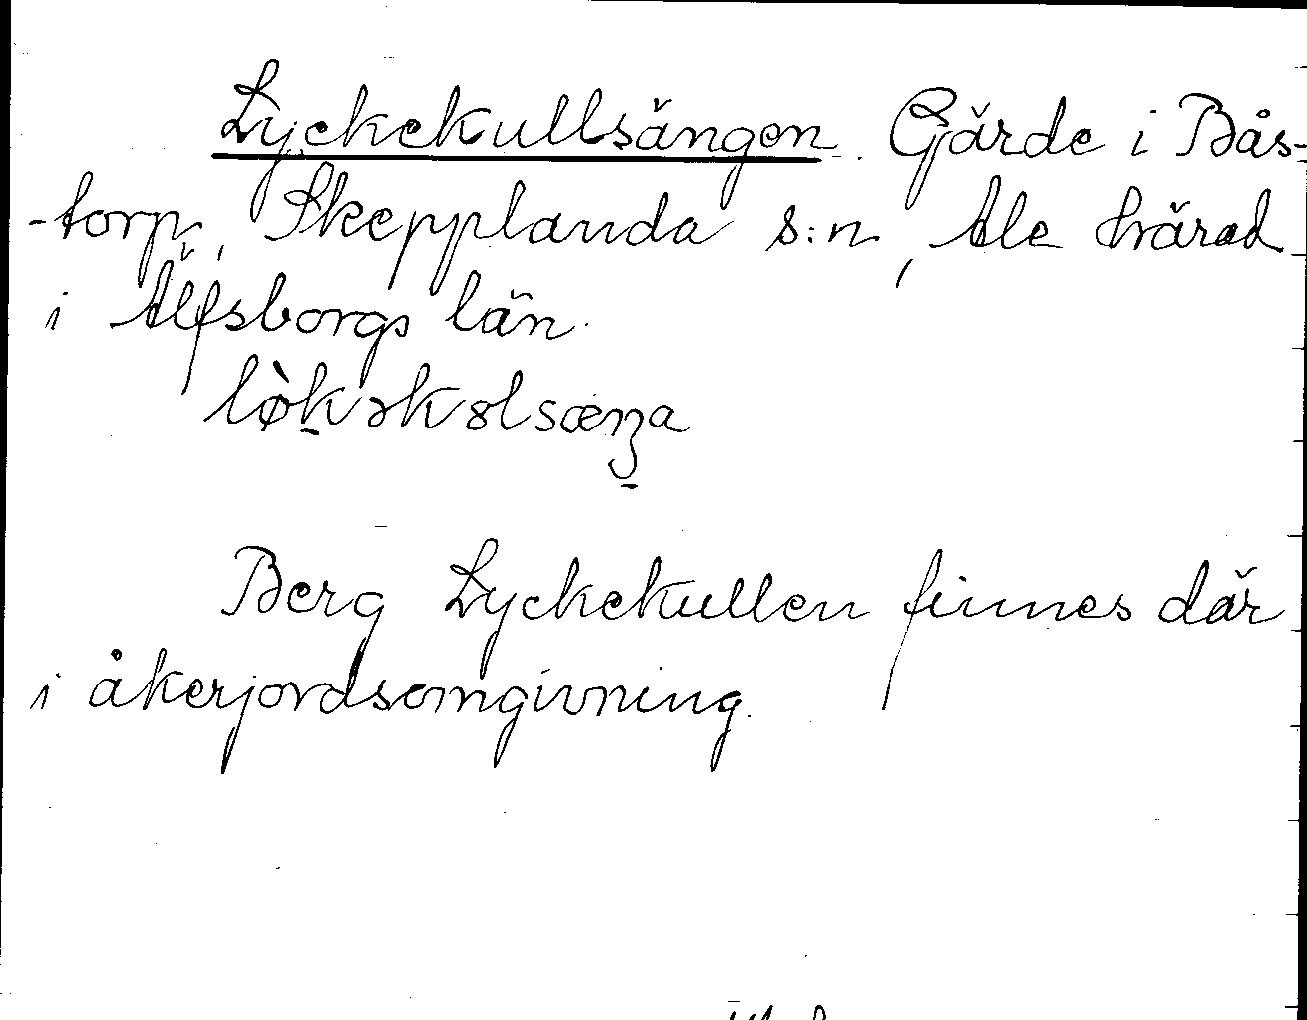 Lyckekullsängen. Gärde i Bås-
-torp, Skepplanda s:n, Ale härad
i Älfsborgs län.
lø̀kəkɷlsæŋa
Berg Lyckekullen finnes där
i åkerjordsomgivning.